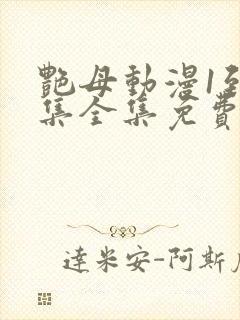 艷母動漫1至
集全集免費
達米安-阿斯